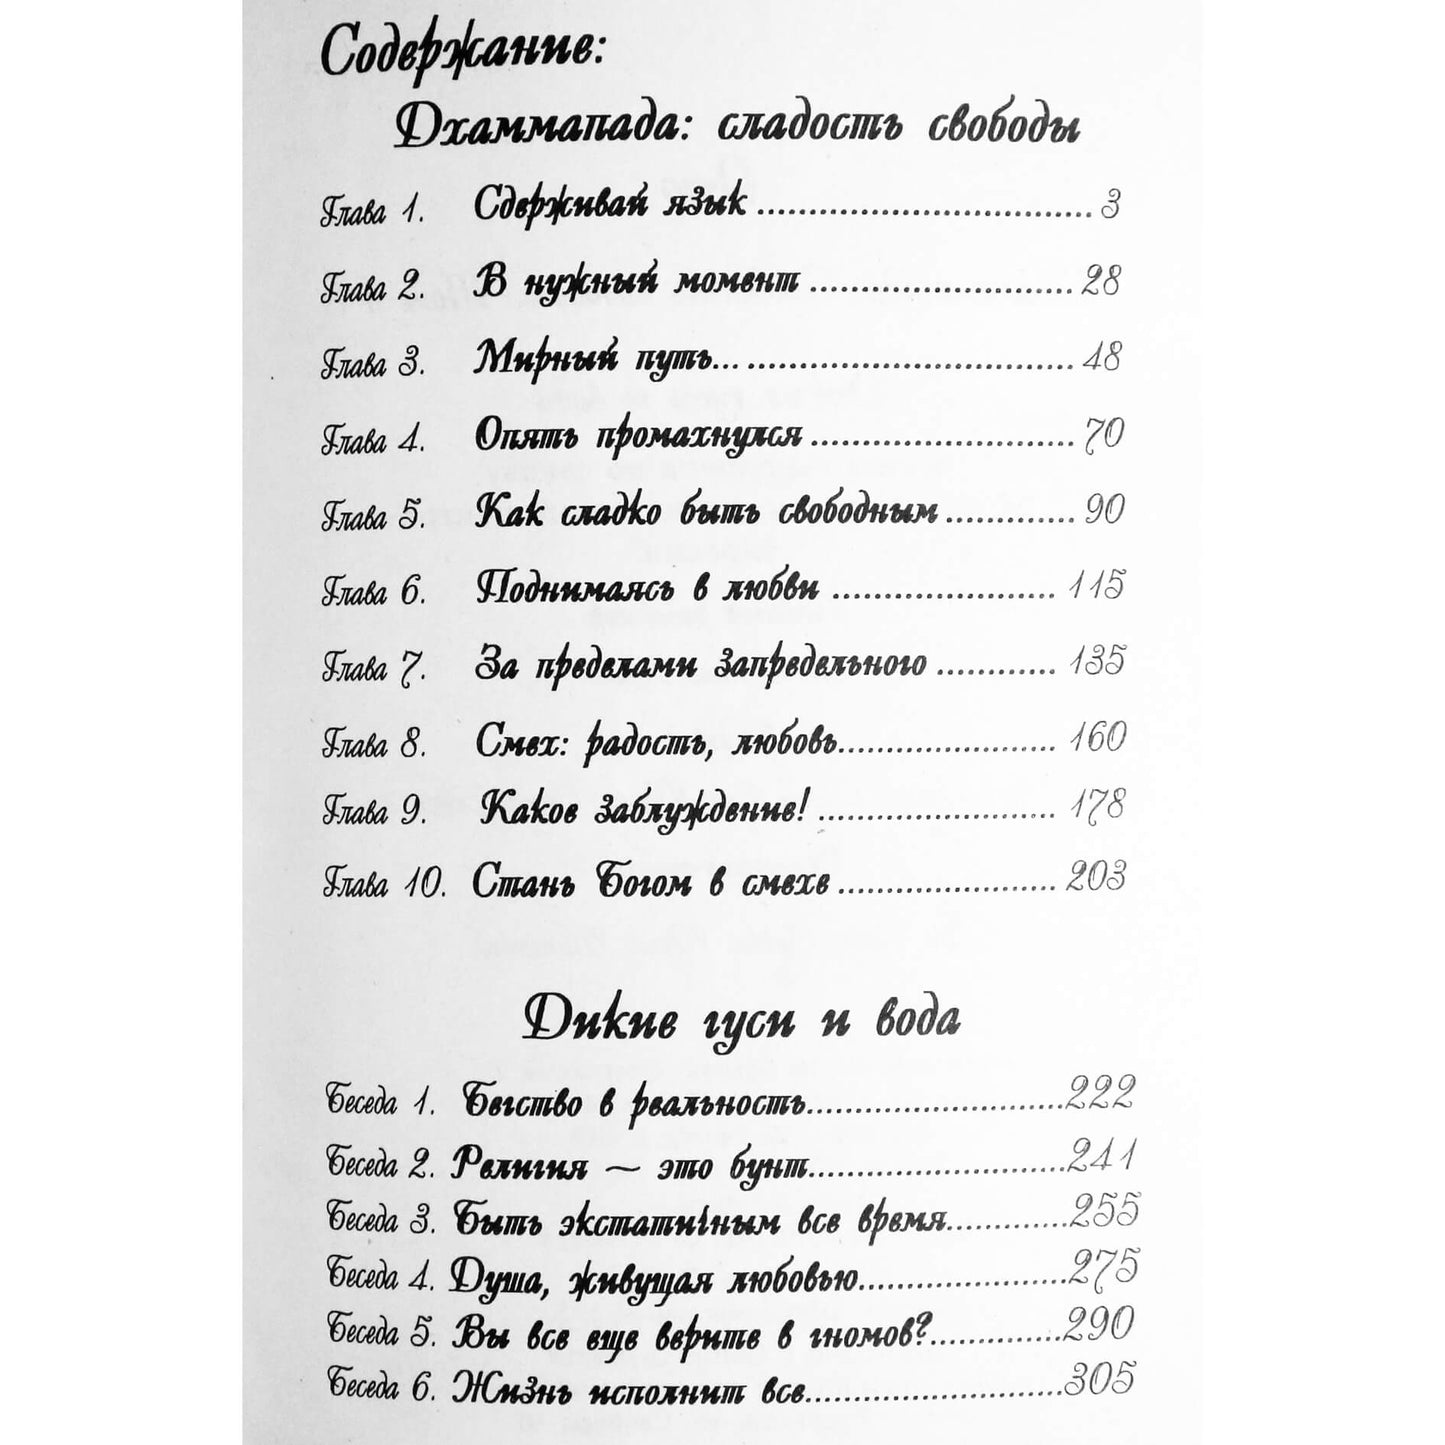 Содержание:
Дхаммапада: сладость свободы
Глава 1. Сдерживай язык ................................. 3
Глава 2. В нужный момент .......................... 28
Глава 3. Мирный путь... ................................ 48
Глава 4. Опять промахнулся .......................... 70
Глава 5. Как сладко быть свободным ............. 90
Глава 6. Поднимаясь в любви ...................... 115
Глава 7. За пределами запредельного ............ 135
Глава 8. Смех: радость, любовь...................... 160
Глава 9. Какое заблуждение! ........................ 178
Глава 10. Стань Богом в смехе ...................... 203
Дикие гуси и вода
Беседа 1. Бегство в реальность..........................222
Беседа 2. Религия — это бунт..........................241
Беседа 3. Быть экстатичным все время............255
Беседа 4. Душа, живущая любовью.....................275
Беседа 5. Вы все еще верите в гномов?.............290
Беседа 6. Жизнь исполнит все..........................305